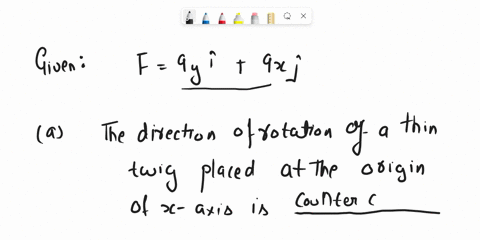 Given: F = 9y î + 9x ĵ
(a) The direction of rotation of a thin
twig placed at the origin
of x-axis is counter c